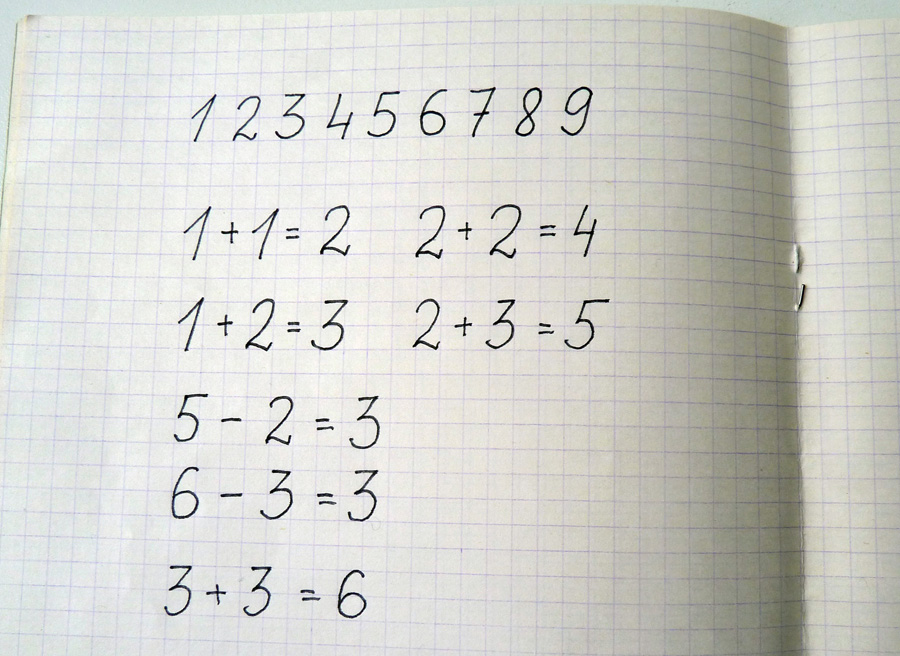 1 2 3 4 5 6 7 8 9
1 + 1 = 2 2 + 2 = 4
1 + 2 = 3 2 + 3 = 5
5 - 2 = 3
6 - 3 = 3
3 + 3 = 6